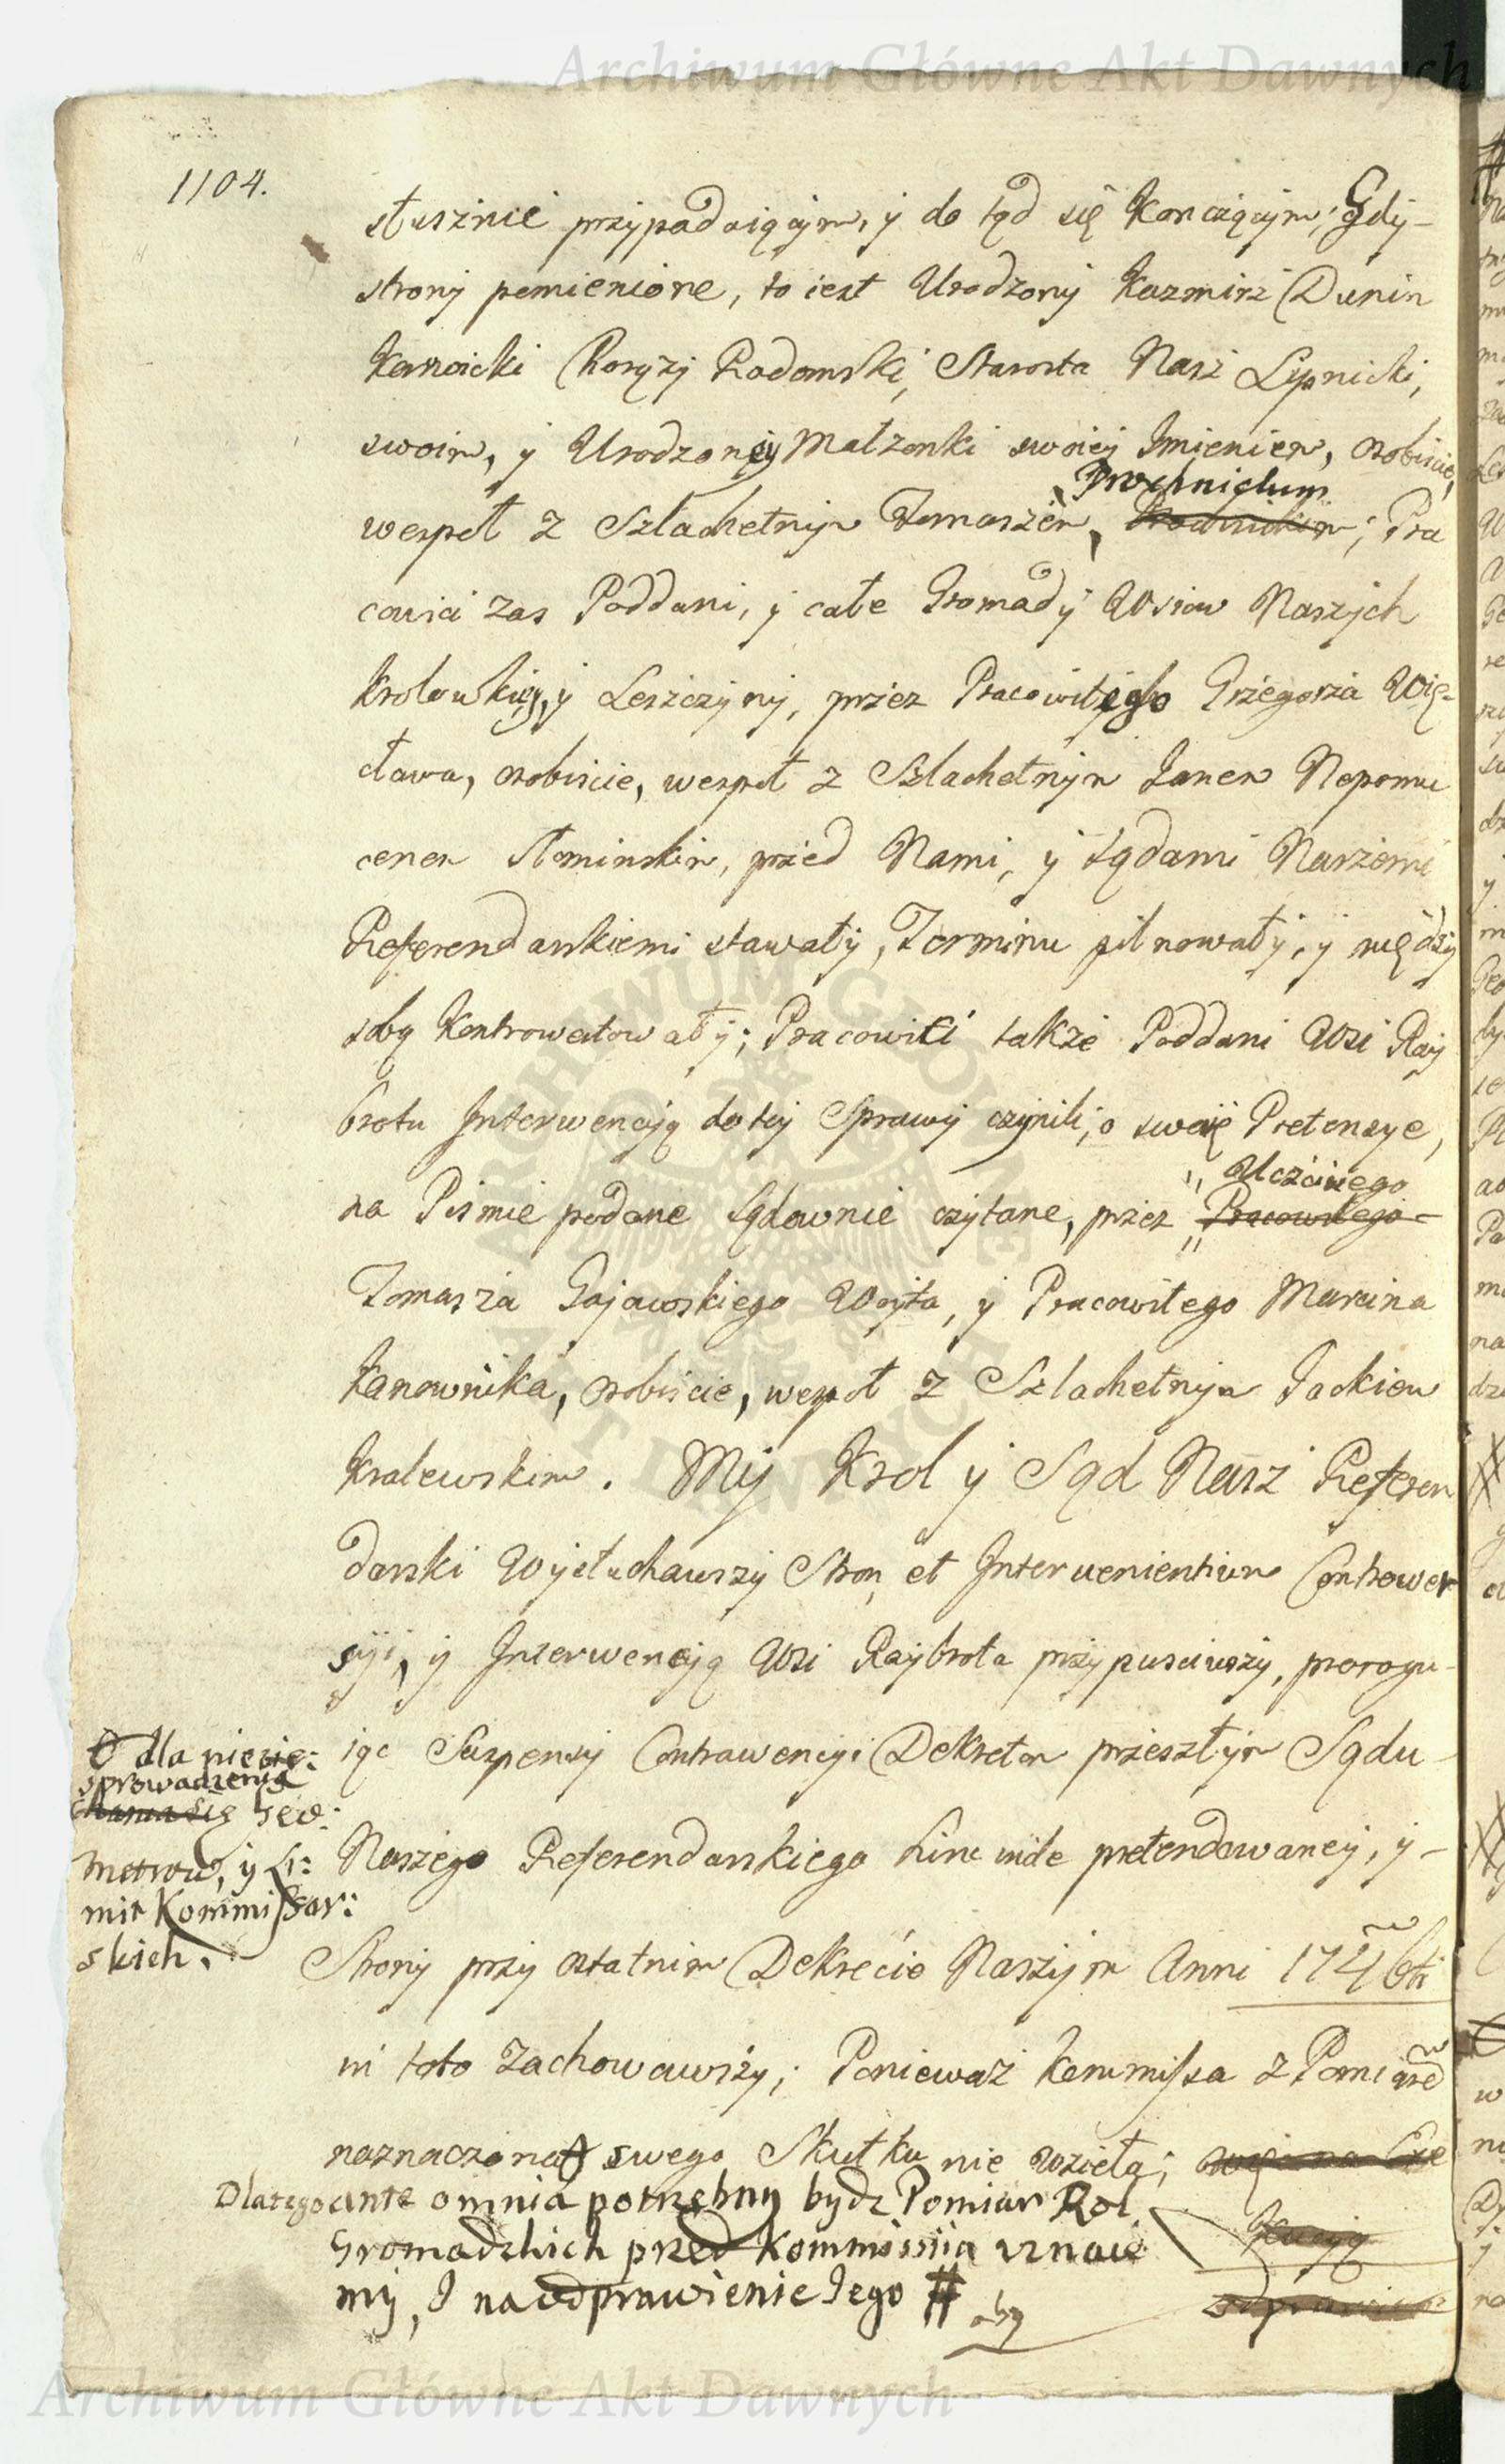 Archiwum Główne Akt Dawnych
1104.
słusznie przypadaiącym, y do tąd się Konczącym; Gdy-
strony pomienione, to iest Urodzony Kazmirz Dunin
Karwicki Chorązy Radomski, Starosta Nasz Lipnicki,
swoim, y Urodzoney Małzonki swoiey Imieniem, osobiscie,
Prochnickim
wespoł z Szlachetnym Tomaszem, ; Pra
cowici zas Poddani, y całe Gromady Wsiow Naszych
Krolowskiey, y Leszczyny, przez Pracowitego Grzegorza Wię-
cława, osobiscie, wespoł z Szlachetnym Janem Nepomu
cenem Słominskim, przed Nami, y Sądami Naszemi
Referendarskiemi stawały, Terminu pilnowały, y między
sobą Kontrowertowały; Pracowici także Poddani Wsi Ray
brotu Interwencyą do tey Sprawy czynili, o swoię Pretensye,
Uczciwego
na Pismie podane Sądownie czytane, przez Pracowitego
Tomasza Gajawskiego Woyta, y Pracowitego Marcina
Kanownika, osobiscie, wespoł z Szlachetnym Jackiem
Kralewskim. My Krol y Sąd Nasz Referen
darski Wysłuchawszy Stron et Intervenientium Contrower
syi, y Interwencyą Wsi Raybrota przypusciwszy, prorogu-
iąc Suspensy Contrawencyi Dekretom przeszłym Sądu
Naszego Referendarskiego hinc inde pretendowaney, y-
O dla niezie:
sprowadzenia
chania się Geo:
metrow, y Li:
mit Kommissar:
skich.
Strony przy ostatnim Dekrecie Naszym Anni
in toto zachowawszy; Ponieważ Kommissa z Pomiarem
naznaczona swego Skutku nie wzieła; więc na Exe
Dlatego ante omnia potrzebny bydz Pomiar Rol
kucyą
Gromadzkich przed Kommissiią uznaie
my, I na odprawienie Iego #
aby
odprawie
Archiwum Główne Akt Dawnych